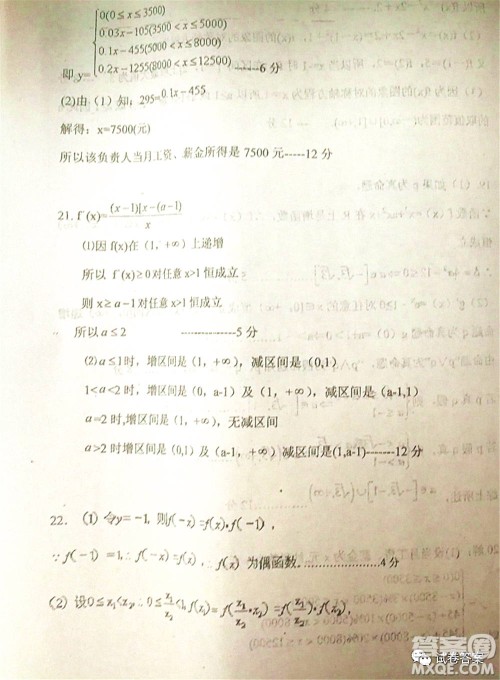 0(0≤x≤3500)
0.03x-105(3500<x≤5000)
0.1x-455(5000<x≤8000)
0.2x-1255(8000<x≤12500)
即 y= ------6 分
(2)由（1）知：295=0.1x-455
解得：x=7500(元)
所以该负责人当月工资、薪金所得是 7500 元-----12 分
21. f′(x)=(x-1)[x-(a-1)]/x
(1)因 f(x)在（1，+∞）上递增
所以 f′(x)≥0对任意 x>1 恒成立
则 x≥a-1对任意 x>1 恒成立
所以 a≤2 -----------5 分
(2) a≤1时，增区间是（1，+∞），减区间是（0,1）
1<a<2 时，增区间是（0，a-1）及（1，+∞），减区间是（a-1,1）
a=2 时,增区间是（1，+∞），无减区间
a>2 时增区间是（0,1）及（a-1，+∞）减区间是(1,a-1)-------12 分
22. (1) 令y=-1, 则f(-x)=f(x)·f(-1),
∵f(-1)=1,∴f(-x)=f(x),∴f(x) 为偶函数……………………4 分
(2) 设0≤x₁<x₂,∴0≤x₁/x₂<1,f(x₁)=f(x₁/x₂·x₂)=f(x₁/x₂)·f(x₂),
答案圈
MXQE.COM
试卷答案